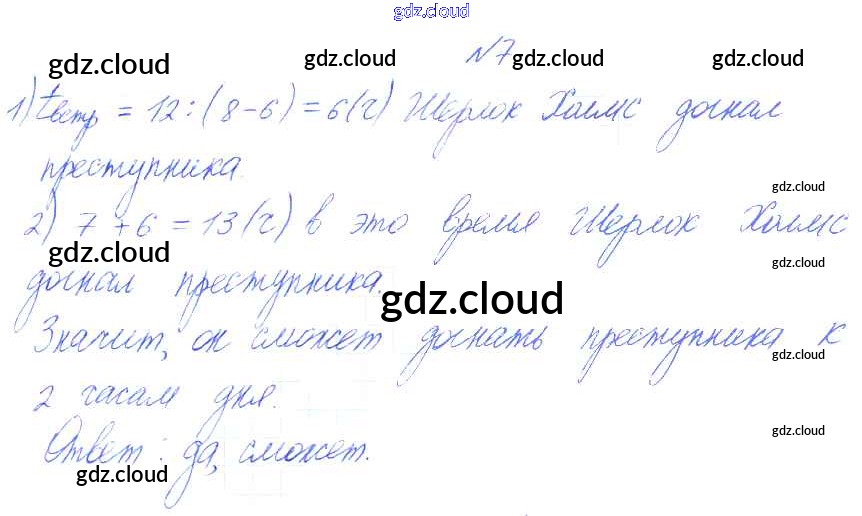 gdz.cloud
gdz.cloud gdz.cloud №7 gdz.cloud
1) tвстр = 12 : (8 - 6) = 6 (ч) Шерлок Холмс догнал
преступника.
gdz.cloud
2) 7 + 6 = 13 (ч) в это время Шерлок Холмс
gdz.cloud gdz.cloud
догнал преступника.
gdz.cloud
Значит, он сможет догнать преступника к
gdz.cloud
2 часам дня.
gdz.cloud
Ответ: да, сможет.
gdz.cloud